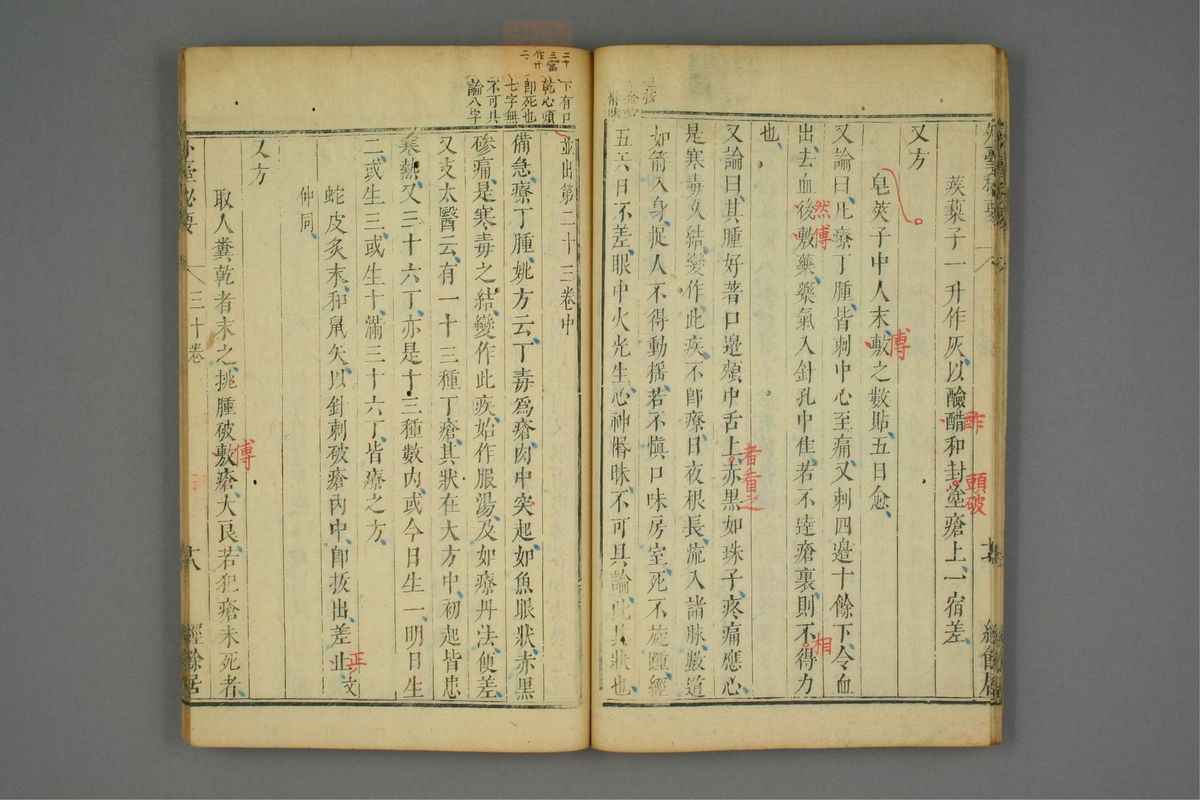 蒺蔾子一升作灰以醶醋和封塗瘡上一宿差
酢
頭破
又方
皂莢子中人末敷之數貼五日愈
傅
又論曰凡療丁腫皆刺中心至痛又刺四邊十餘下令血
出去血後敷藥藥氣入針孔中佳若不達瘡裏則不得力
然傅
相
也
又論曰其腫好著口邊頰中舌上赤黑如珠子疼痛應心
者看之
是寒毒久結變作此疾不卽療日夜根長流入諸脉數道
如箭入身捉人不得動搖若不慎口味房室死不旋踵經
五六日不差眼中火光生心神惛昧不可具論此其狀也
二十
三當
作廾
二
下有口
乾心煩
卽死也
七字無
不可具
論八字
並出第二十三卷中
備急療丁腫姚方云丁毒爲瘡肉中突起如魚眼狀赤黑
㾕痛是寒毒之結變作此疾始作服湯及如療丹法便差
又支太醫云有一十三種丁瘡其狀在大方中初起皆患
寒熱又三十六丁亦是十三種數內或今日生一明日生
二或生三或生十滿三十六丁皆療之方
蛇皮炙末和鼠矢以針刺破瘡內中卽拔出差止文
正
仲同
又方
取人糞乾者末之挑腫破敷瘡大良若犯瘡未死者
傅
外臺秘要
三十卷
十八
經餘居